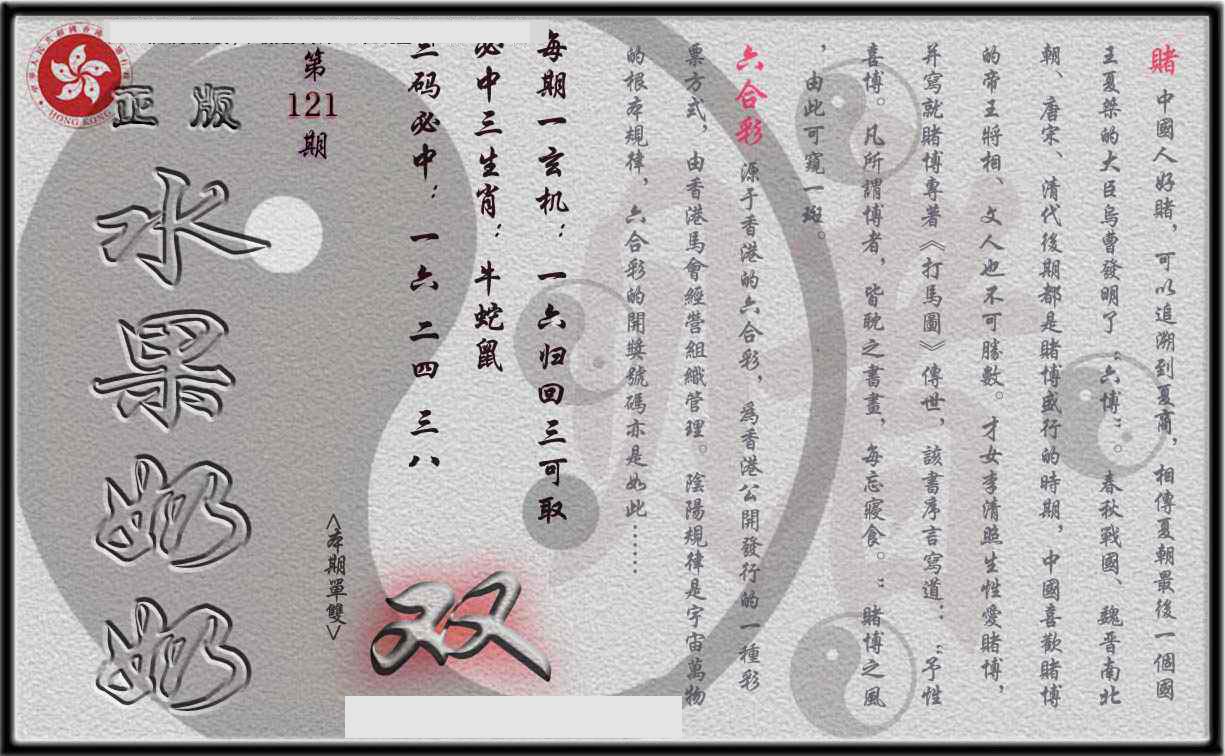 賭 中國人好賭，可以追溯到夏商，相傳夏朝最後一個國
王夏桀的大臣烏曹發明了“六博”。春秋戰國、魏晋南北
朝、唐宋、清代後期都是賭博盛行的時期，中國喜歡賭博
的帝王將相、文人也不可勝數。才女李清照生性愛賭博，
并寫就賭博專著《打馬圖》傳世，該書序言寫道：“予性
喜博。凡所謂博者，皆耽之書畫，每忘寢食。”賭博之風
，由此可窺一斑。
六合彩 源于香港的六合彩，為香港公開發行的一種彩
票方式，由香港馬會經營組織管理。陰陽規律是宇宙萬物
的根本規律，六合彩的開獎號碼亦是如此……
每期一玄机：一六归回三可取
必中三生肖：牛蛇鼠
三码必中：一六 二四 三八
双
<本期單雙>
第
121
期
正版
水果奶奶
HONG KONG